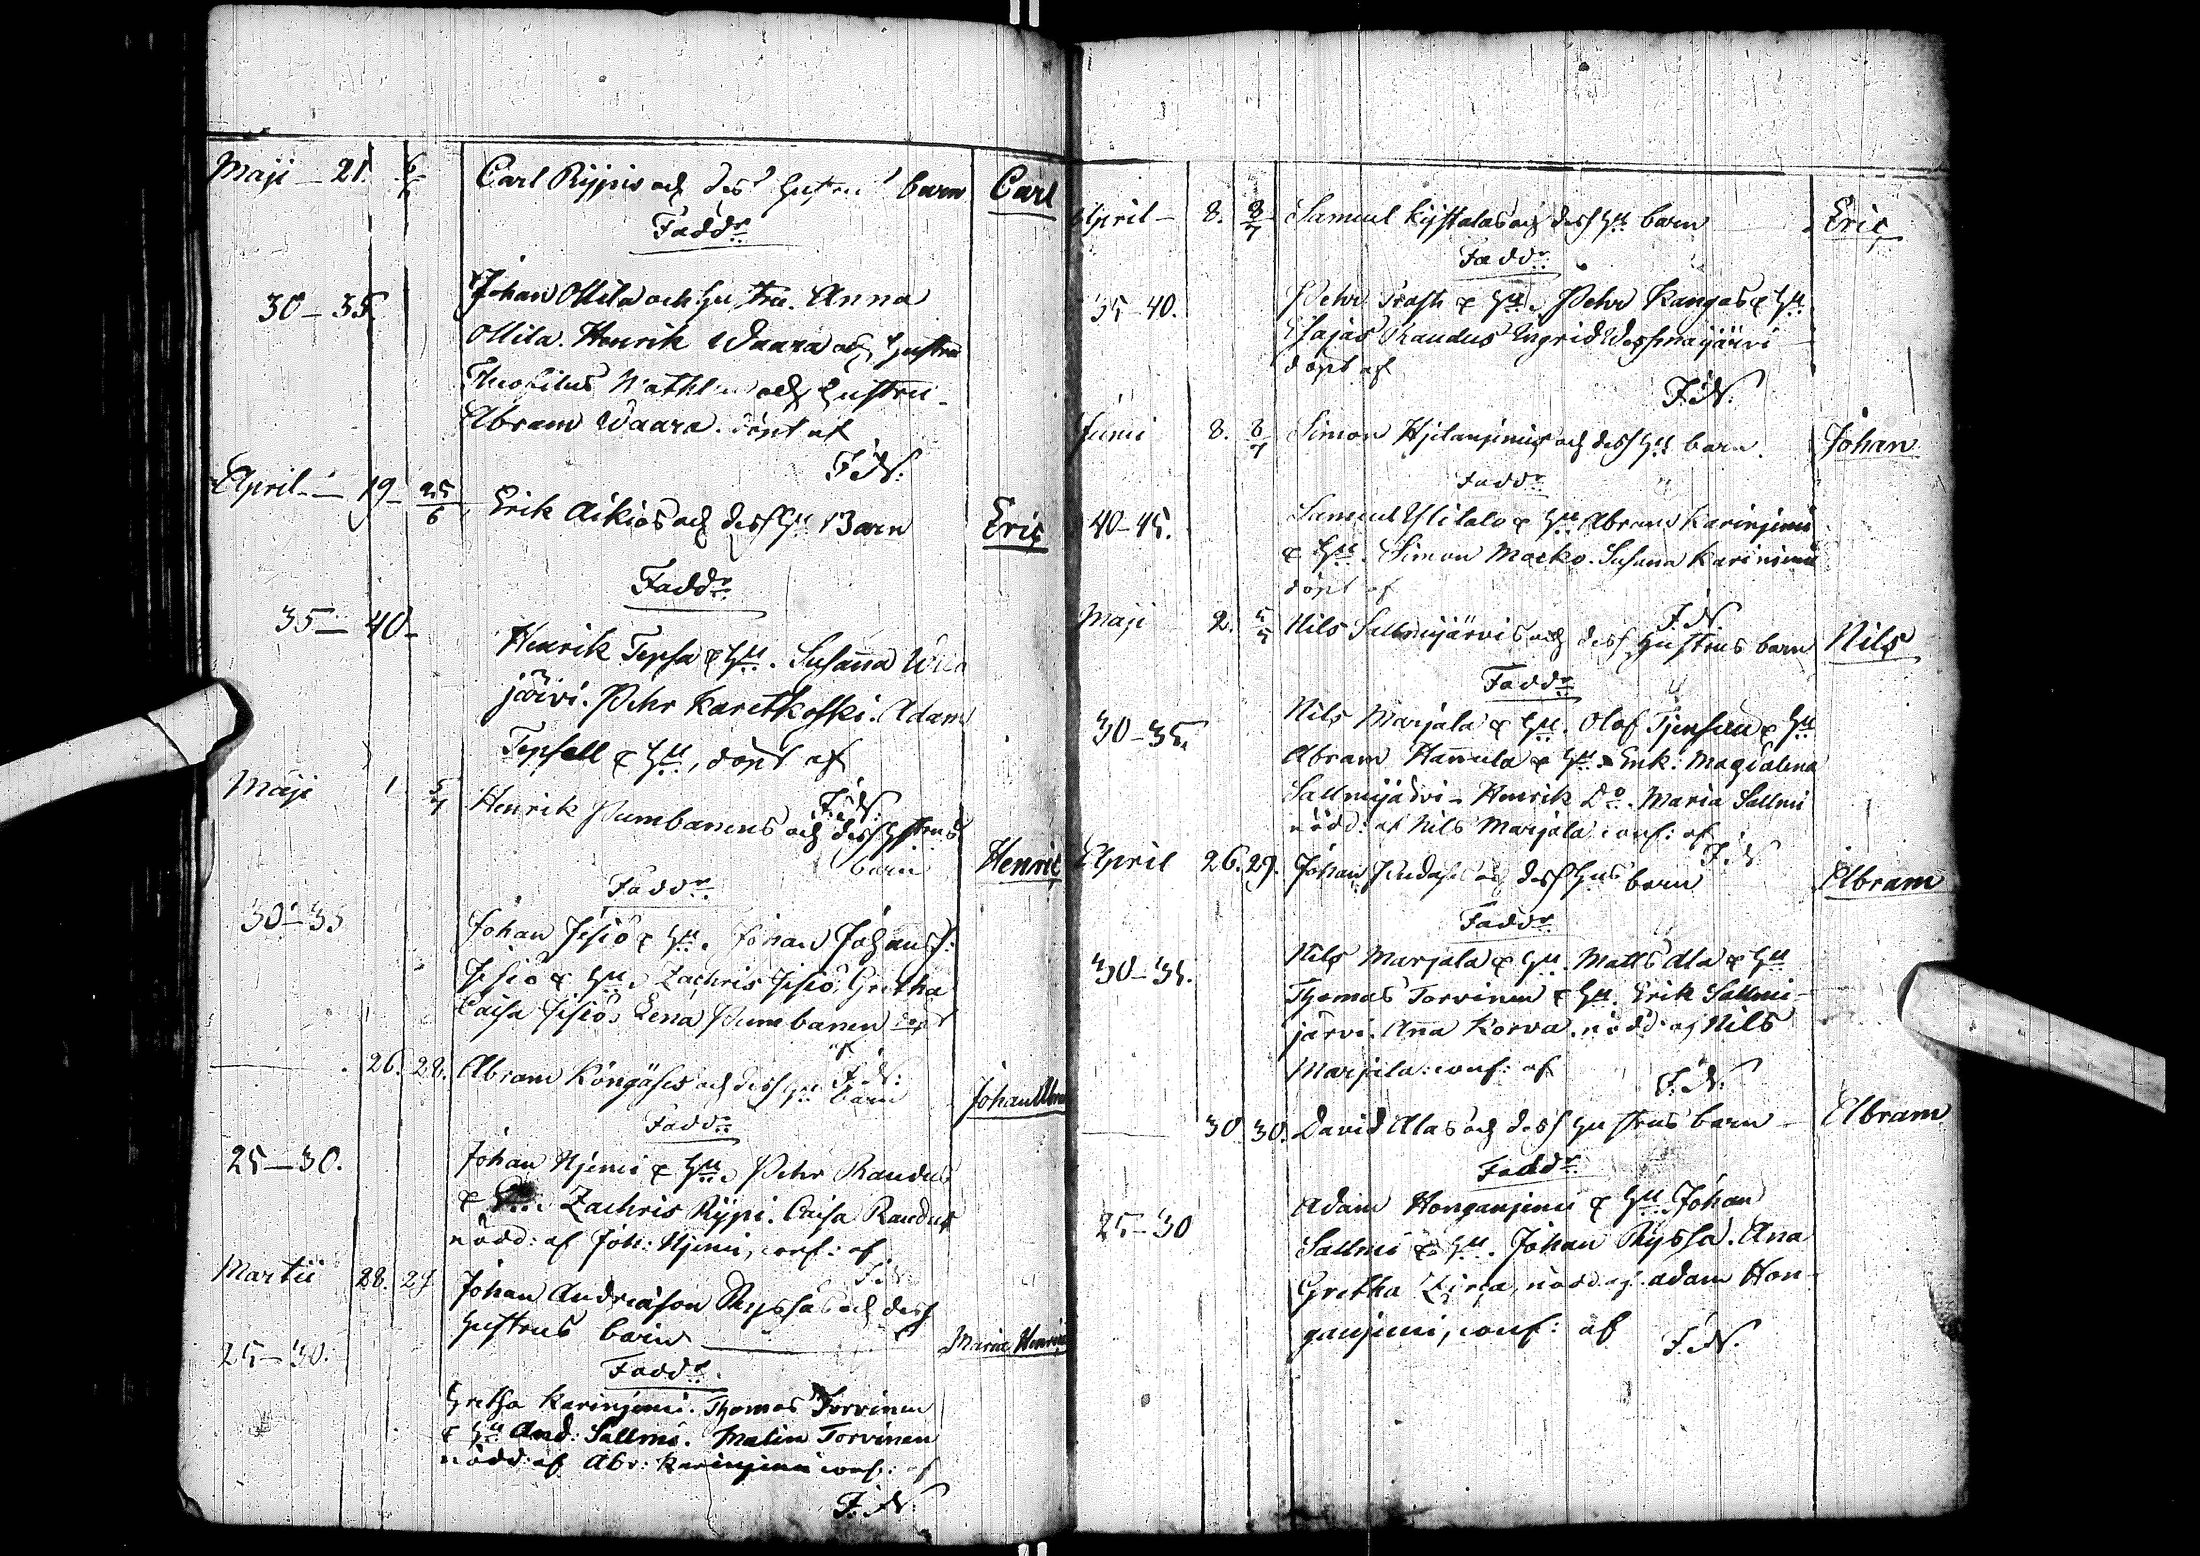 Maji - 21. 6/6 Carl Rÿpis och dess hustrus barn Carl
Fadd:r
30-35 Johan Ollila och hustru. Anna
Ollila. Henrik Waara och hustru
Theofilus och hustru.
Abram Waara. döpt af
F.N.
April - 19- 25/6 Erik Aikios och dess hu Barn Eric
Fadd:r
35-40- Henrik Tepsa & hu. Susanna
järvi. Pehr Karetkoski. Adam
Tepsell & hu, döpt af
F.N.
Maji 1 5/7 Henrik Pumbanens och dess hustrus
barn Henric
Fadd:r
30-35 Johan Jesiö & hu. Johan Johanss:
Jesiö & hu. Zachris Jesiö. Gretha
Caisa Jesiö. Lena Pumbanen döpt
af
F.N.
26. 28. Abram Köngäses och dess hu barn Johan Abra
Fadd:r
25-30. Johan Njemi & hu. Pehr Raudus
& Zachris Rÿpi. Caisa Raudus
nödd: af Joh: Njemi, conf: af
F.N.
Martii 28. 29 Johan Andreasson Ryssas och dess
hustrus barn Maria Henrica
25-30. Fadd:r
Gretha Karinjemi. Thomas Torvinen
& hu And: Sallmi. Malin Torvinen
nödd: af Abr: Karinjemi conf: af
F.N.
April - 8. 8/7 Samuel och dess hu barn Eric
Fadd:r
35-40. Pehr & hu. Pehr Kangas & hu
Esajas Raudus Ingrid
döpt af
F.N.
Junii 8. 8/7 Simon och dess hu barn. Johan
Fadd:r
40-45. Samuel Ylitalo & hu Abram Karinjemi
& hu. Simon Marko. Susanna Karinjemi
döpt af
F.N.
Maji 2. 5/7 Nils Sallmijärvis och dess hustrus barn Nils
Fadd:r
30-35. Nils Marjala & hu. Olof & hu
Abram Hannula & hu. Erik: Magdalena
Sallmijärvi - Henrik D:o. Maria Sallmi
nödd: af Nils Marjala conf: af
F.N
April 26. 29. Johan och dess hus barn Abram
Fadd:r
30-35. Nils Marjala & hu. Matts Ala & hu
Thomas Torvinen & hu. Erik Sallmi-
järvi. Anna Korva. nödd: af Nils
Marjala: conf: af
F.N.
30. 30. David Alas och dess hustrus barn - Abram
Fadd:r
25-30 Adam Honganjemi & hu. Johan
Sallmi & hu. Johan Ryssa. Ana
Gretha nödd af. Adam Hon-
ganjemi, conf: af F.N.